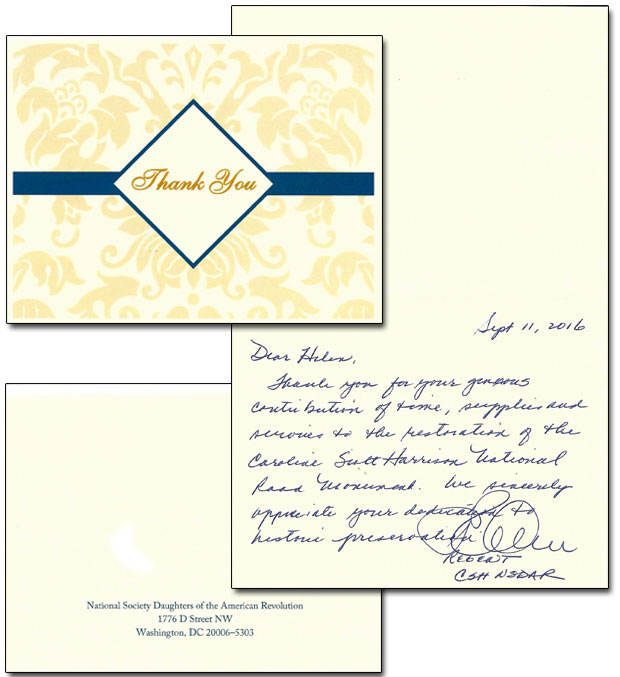 Thank You
Sept 11, 2016
Dear Helen,
Thank you for your generous
contribution of time, supplies and
services to the restoration of the
Caroline Scott Harrison National
Road Monument. We sincerely
appreciate your dedication to
historic preservation
REGENT
CSH NSDAR
National Society Daughters of the American Revolution
1776 D Street NW
Washington, DC 20006–5303